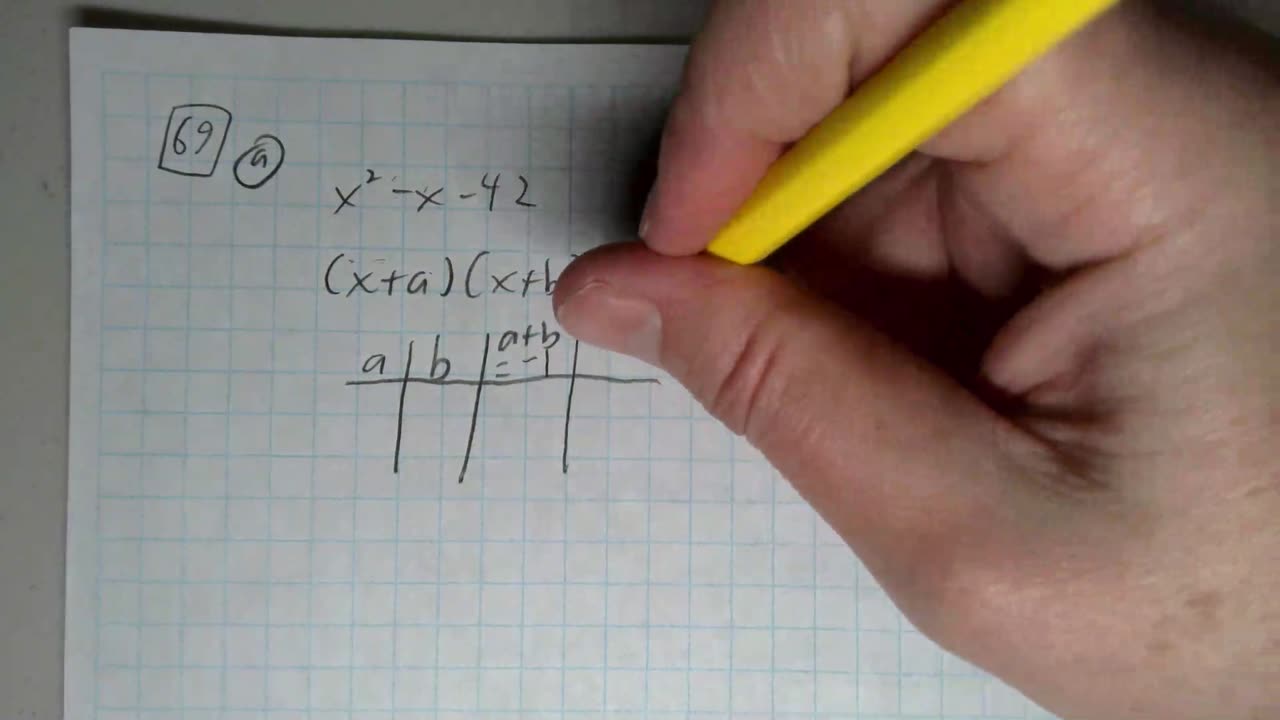 69 a
x² - x - 42
(x+a)(x+b
a b a+b
= -1